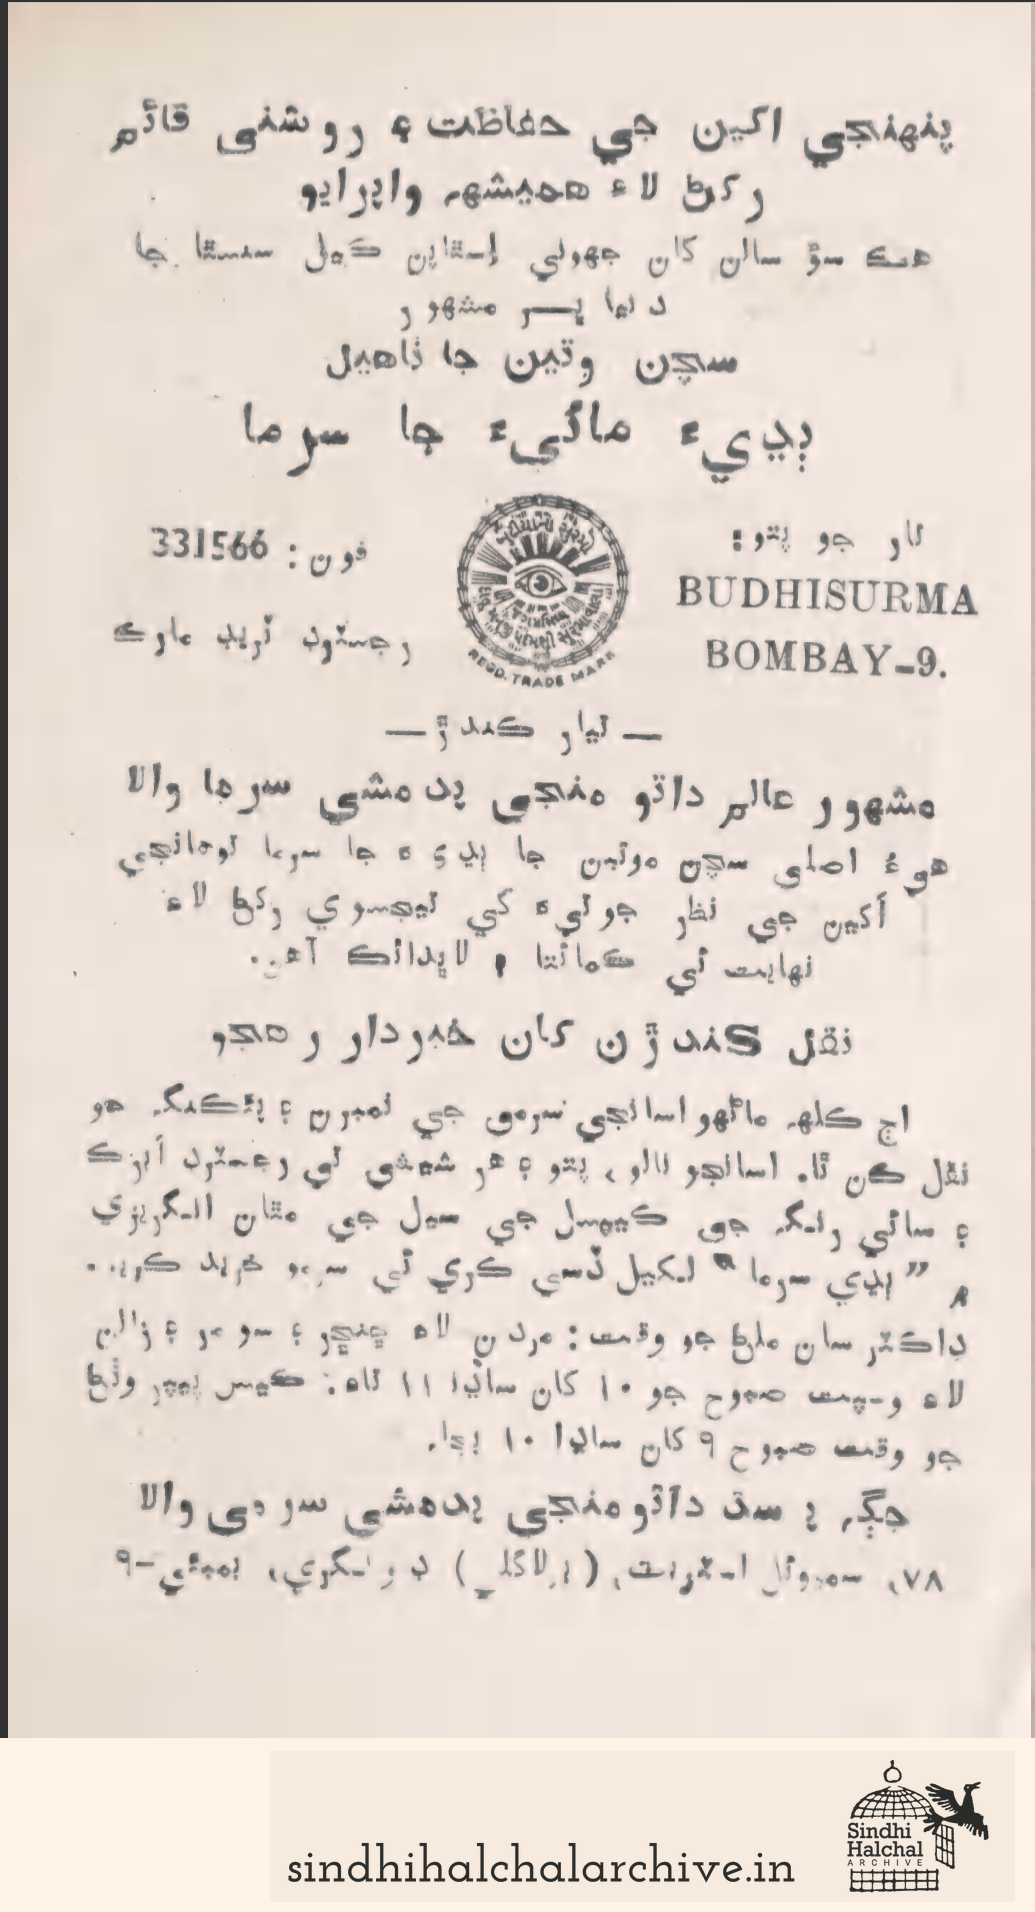 پنهنجي اکين جي حفاظت ۽ روشني قائم
رکڻ لاءِ هميشہ واپرايو
هڪ سؤ سالن کان جھوني إستاپن ڪيل سنستا جا
دنيا ڀر ۾ مشهور
سچن موتين جا ٺاهيل
ٻڍيءَ مائيءَ جا سرما
تار جو پتو:
BUDHISURMA
BOMBAY-9.
فون: 331566
رجسٽرڊ ٽريڊ مارڪ
REGD. TRADE MARK
— تيار ڪندڙ —
مشهور عالم داتو منجي پدمشي سرما والا
هيءُ اصلي سچن موتين جا ٻڍيءَ جا سرما توهانجي
اکين جي نظر جوتيءَ کي تيجسوي رکڻ لاءِ
نهايت ئي ڪمائتا ۽ لاڀدائڪ آهن.
نقل ڪندڙن کان خبردار رهجو
اڄ ڪلهہ ماڻهو اسانجي سرمي جي نمبرن ۽ پئڪنگہ جو
نقل ڪن ٿا. اسانجو نالو، پتو ۽ هر شيشي تي رجسٽرڊ
۽ سائي رنگہ جي ڪيپسل جي سيل جي مٿان انگريزي
۾ ”ٻڍي سرما“ لکيل ڏسي ڪري ئي سرمو خريد ڪريو.
ڊاڪٽر سان ملڻ جو وقت: مردن لاءِ ڇنڇر ۽ سومر ۽ زالن
لاءِ وسپت صبوح جو ١٠ کان ساڍا ١١ تاءِ: ڪيس پيپر وٺڻ
جو وقت صبوح ٩ کان ساڍا ١٠ بجا.
جڳہ پرسڌ داتو منجي پدمشي سرمي والا
٧٨، سميوئل اسٽريٽ، (پالاگلي) ڊونگري، بمبئي-٩
sindhihalchalarchive.in
Sindhi
Halchal
ARCHIVE